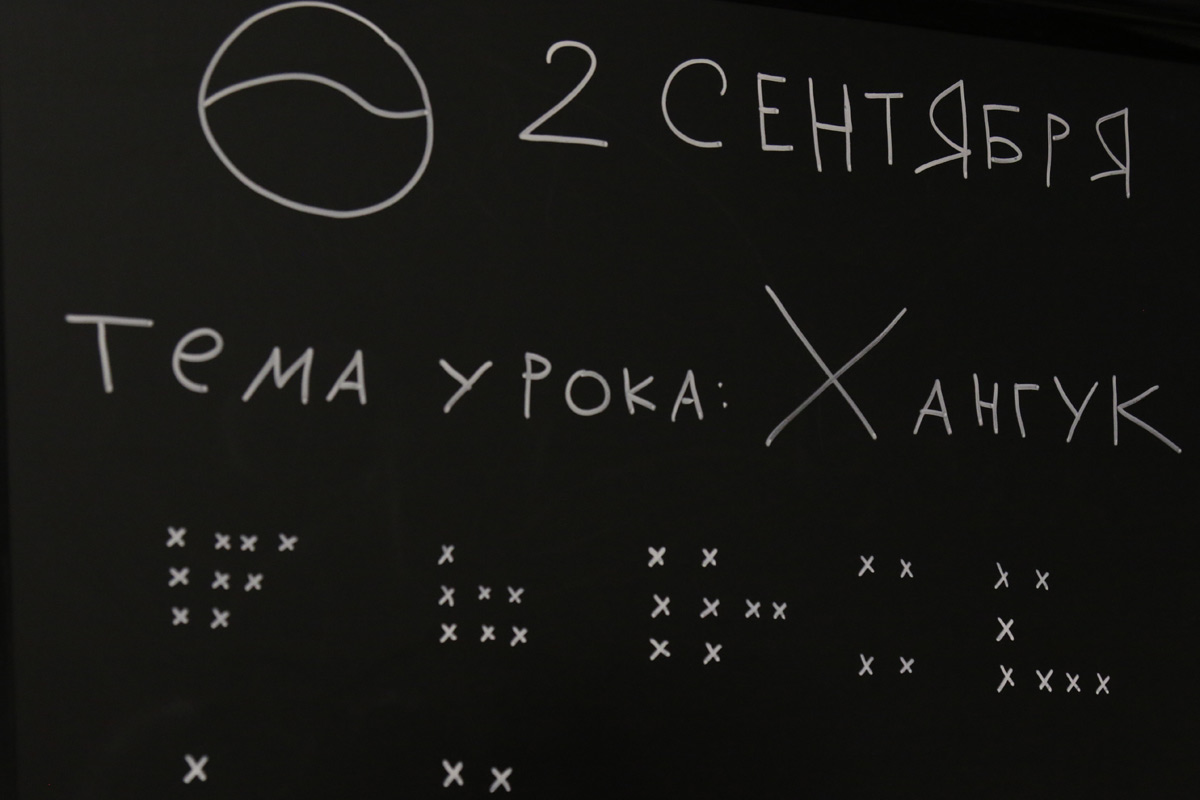 2 СЕНТЯБРЯ
Тема урока: Хангук